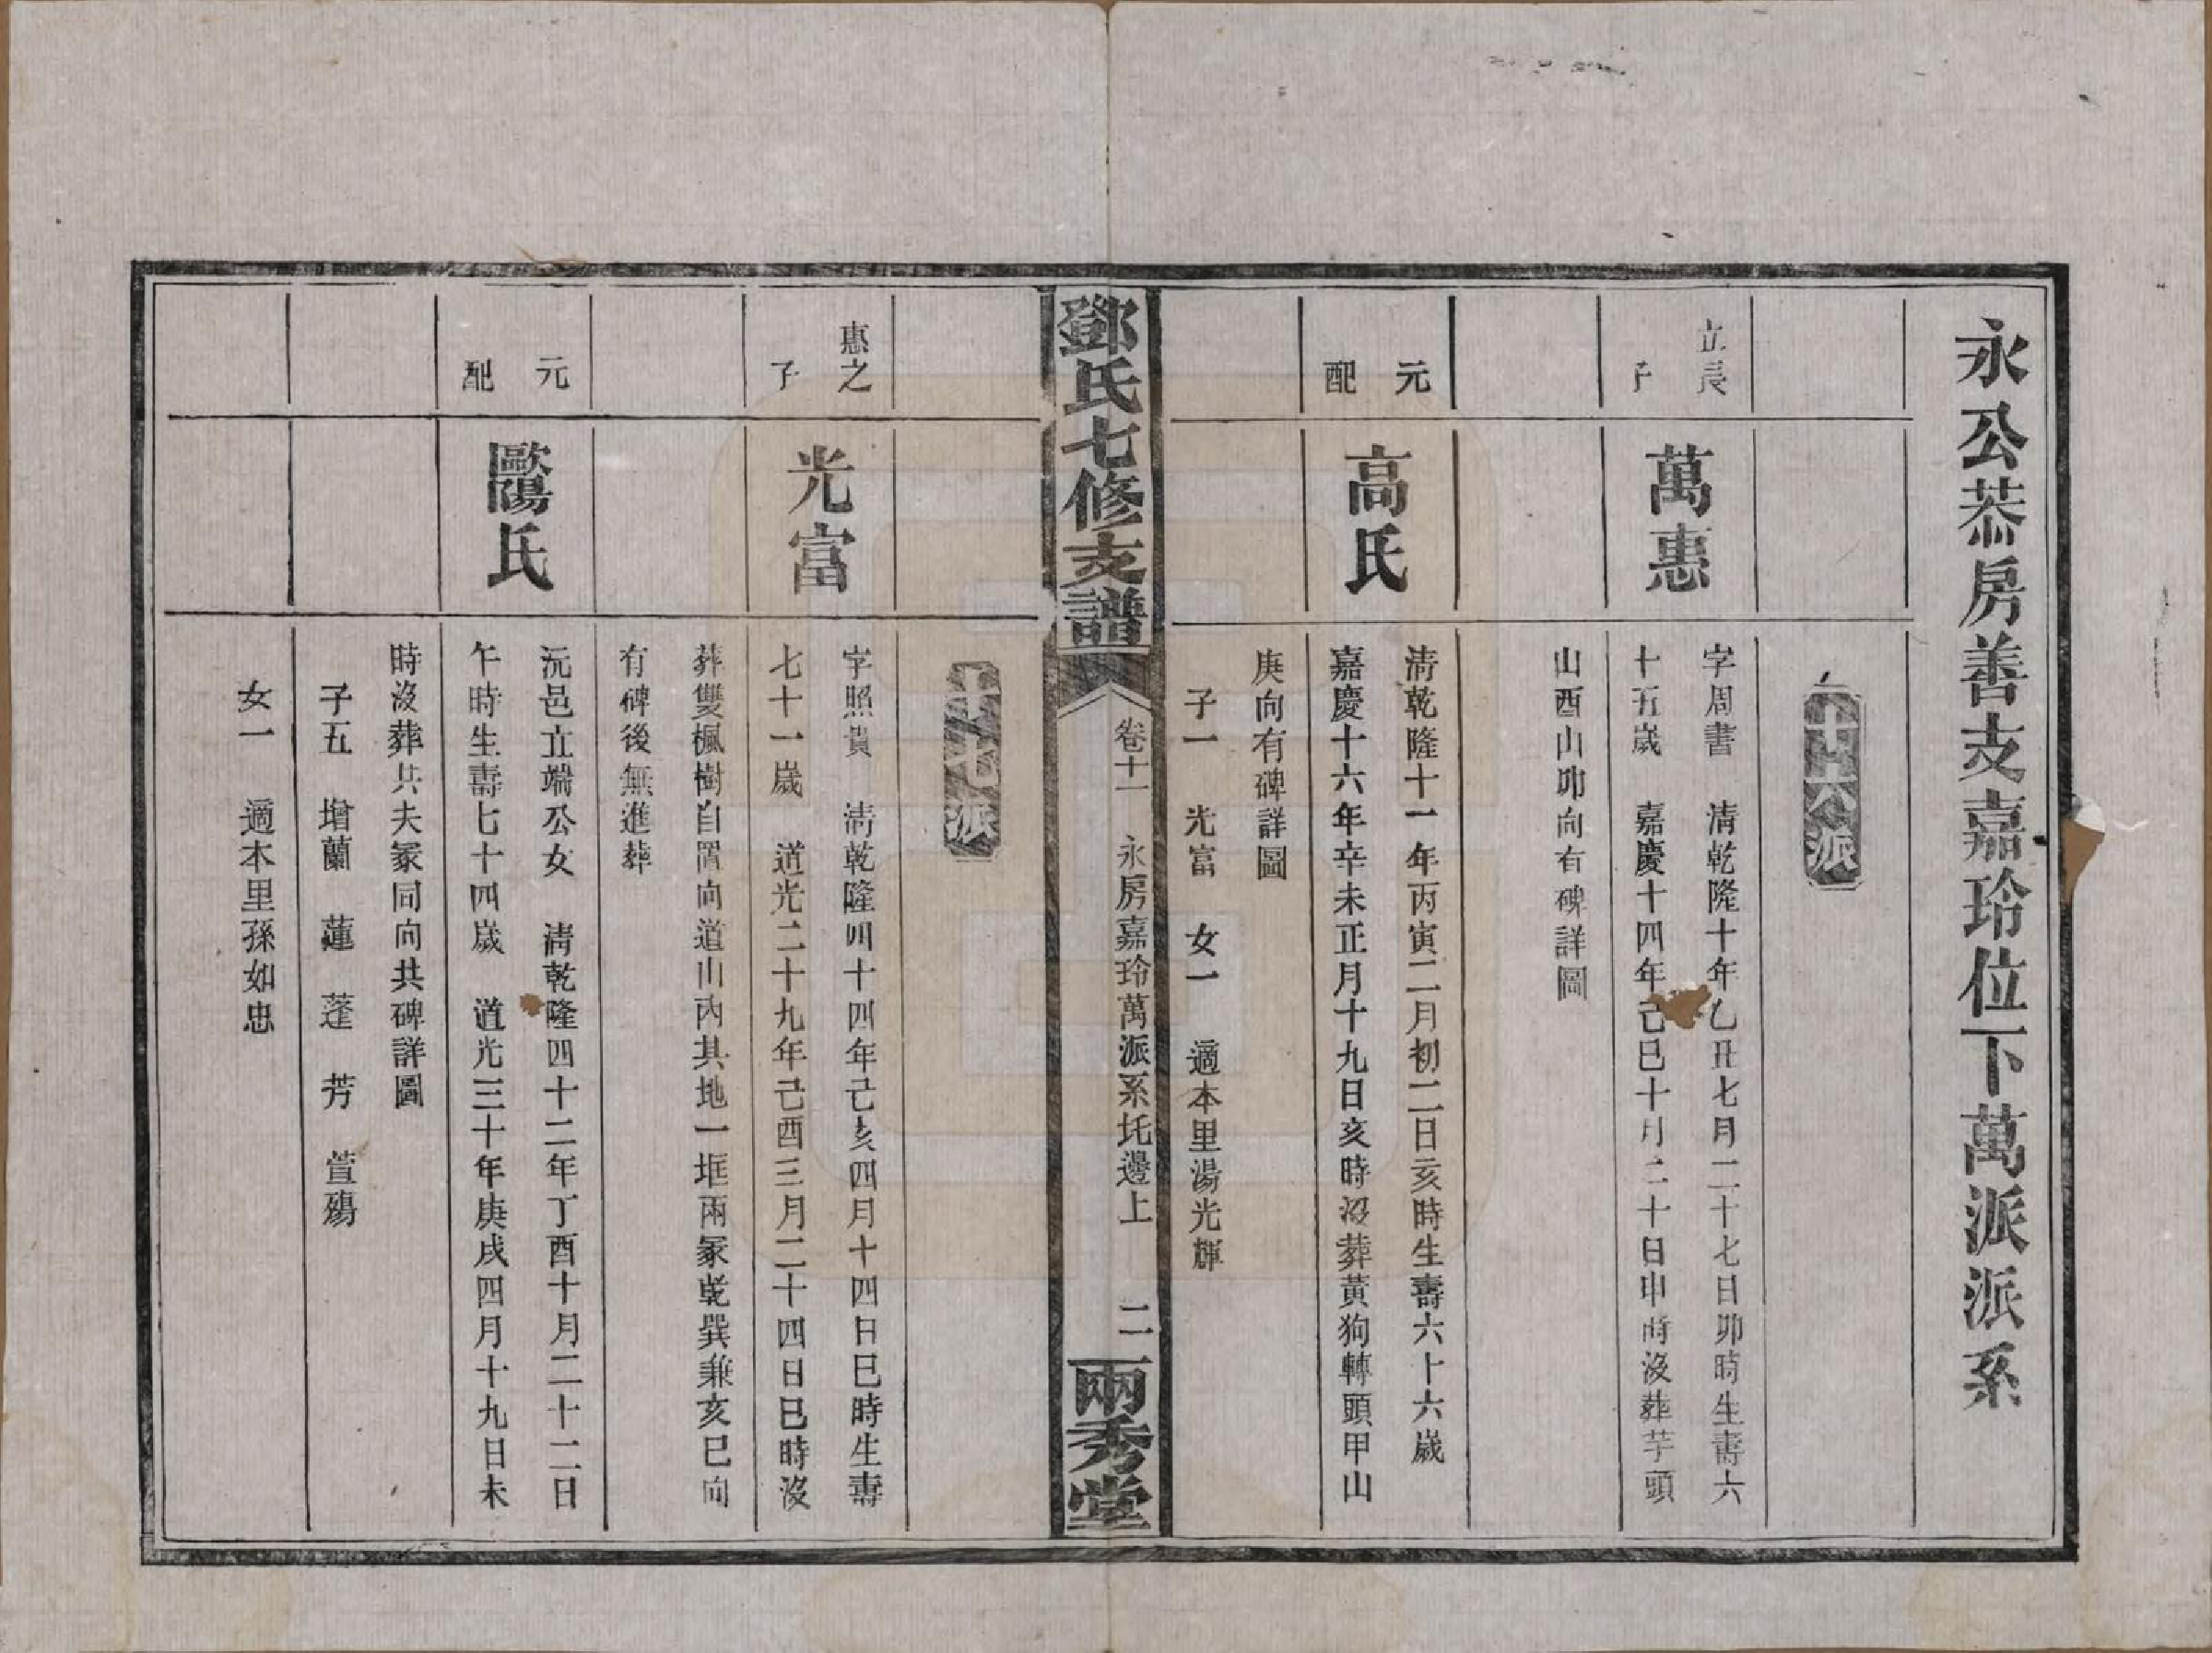 永公恭房善支嘉玲位下萬派派系
十六派
立長
子
萬惠
字周書　清乾隆十年乙丑七月二十七日卯時生壽六
十五歲　嘉慶十四年己巳十月二十日申時沒葬芋頭
山酉山卯向有碑詳圖
元
配
高氏
清乾隆十一年丙寅二月初二日亥時生壽六十六歲
嘉慶十六年辛未正月十九日亥時沒葬黃狗轉頭甲山
庚向有碑詳圖
子一　光富　女一　適本里湯光輝
鄧氏七修支譜
卷十一　永房嘉玲萬派系圫邊上　二
兩秀堂
十七派
惠之
子
光富
字照貴　清乾隆四十四年己亥四月十四日巳時生壽
七十一歲　道光二十九年己酉三月二十四日巳時沒
葬雙楓樹自置向道山內其地一㘯兩冢乾巽兼亥巳向
有碑後無進葬
元
配
歐陽氏
沅邑立端公女　清乾隆四十二年丁酉十月二十二日
午時生壽七十四歲　道光三十年庚戌四月十九日未
時沒葬共夫冢同向共碑詳圖
子五　增蘭　蓮　蓬　芳　萱殤
女一　適本里孫如忠